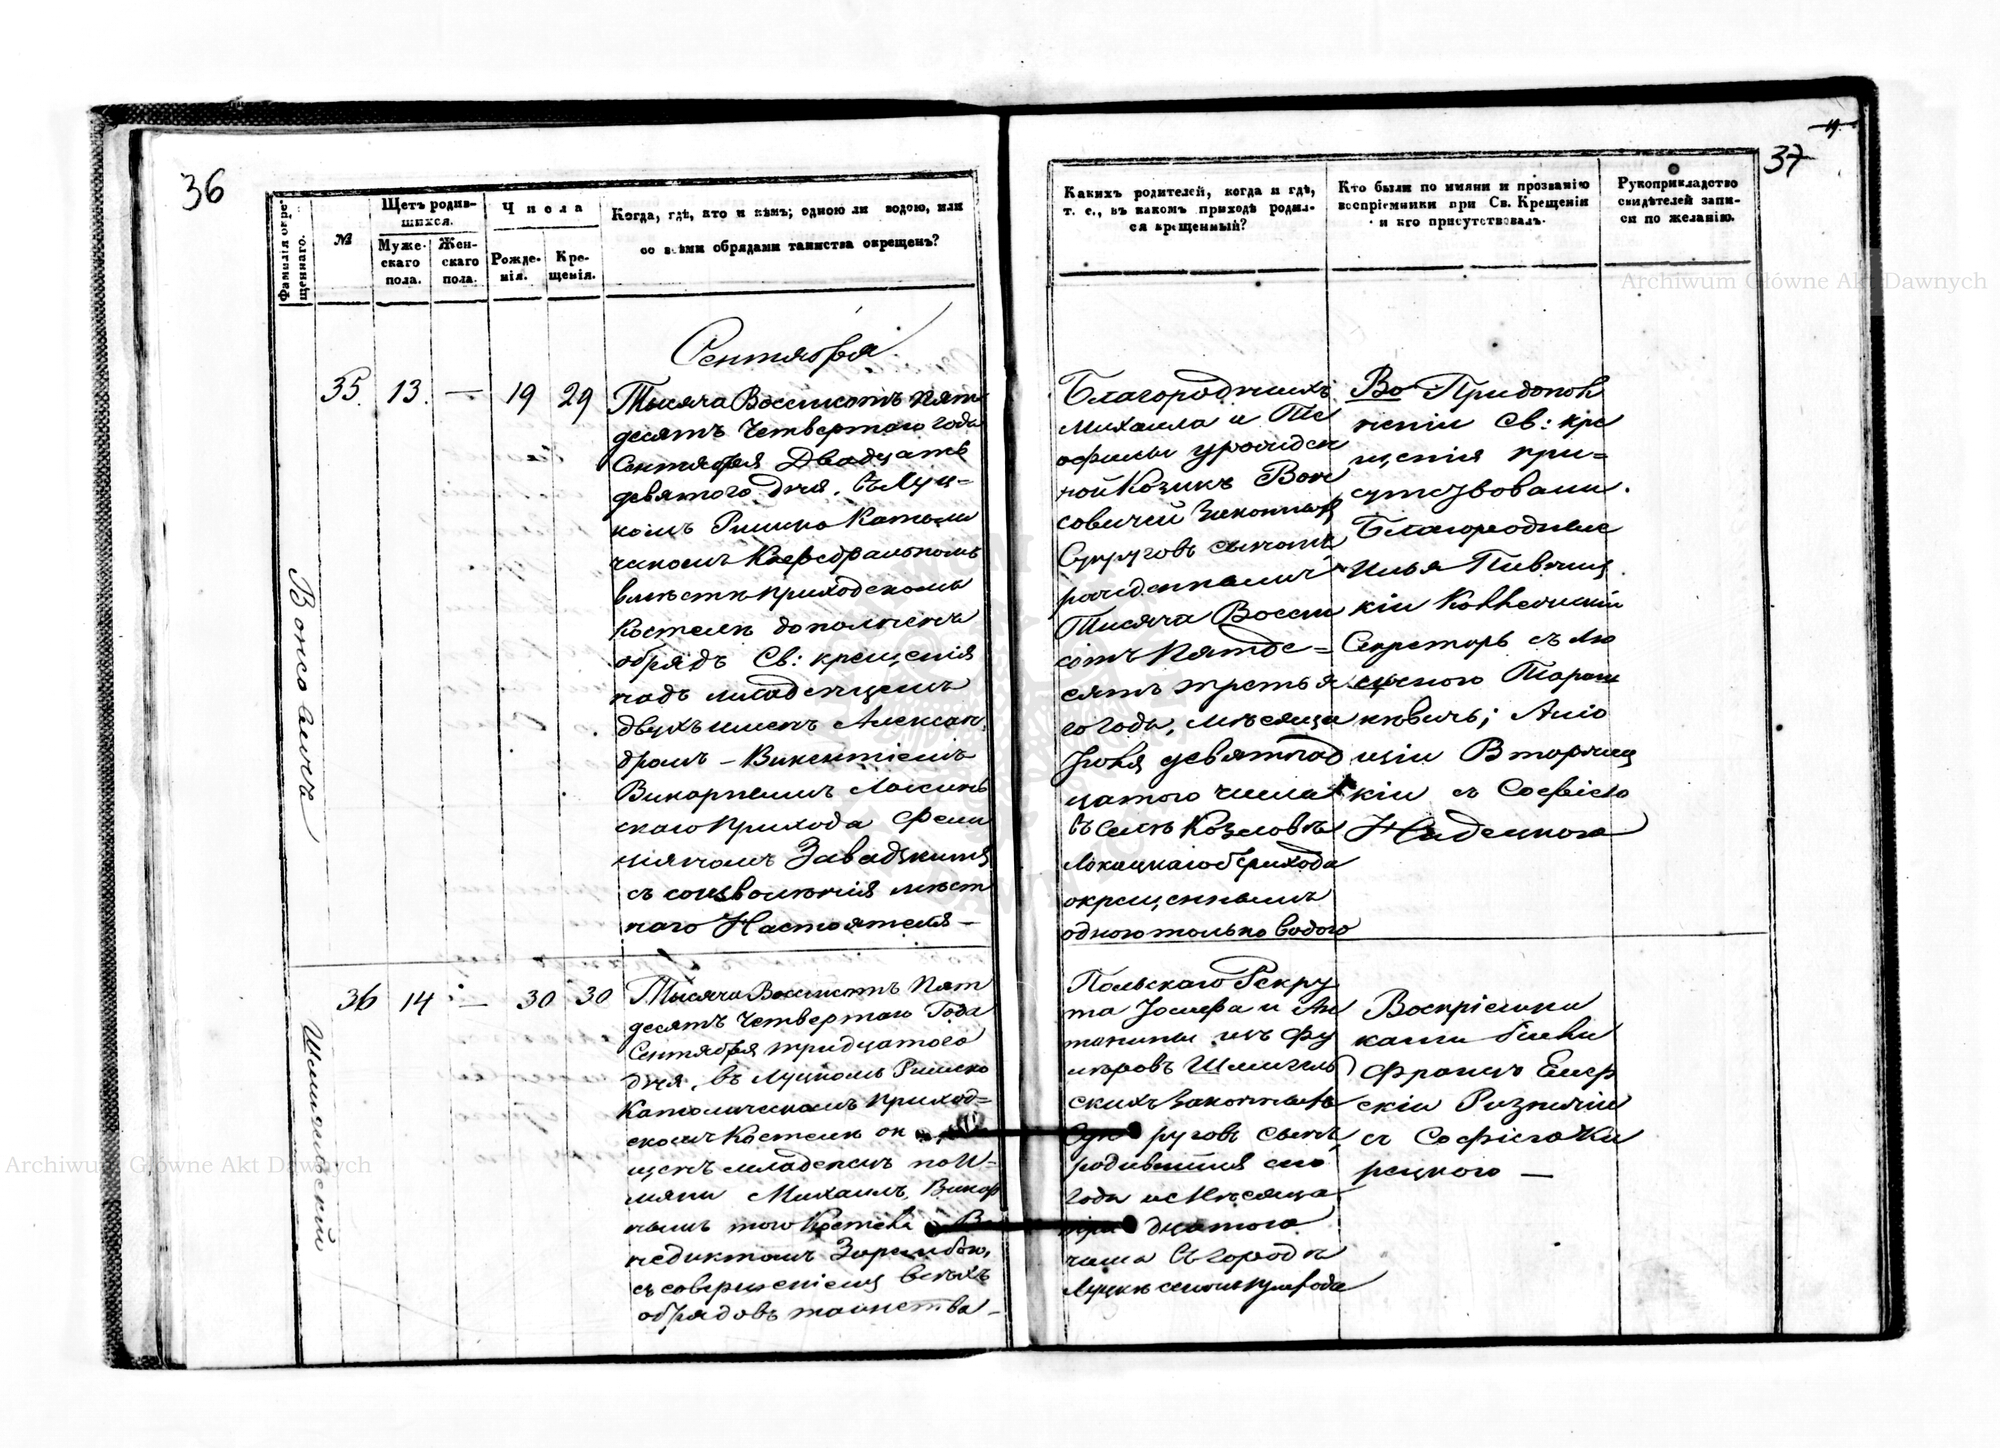 36
Фамилія окре-
щеннаго.
№
Щетъ родив-
шихся.
Муже-
скаго
пола.
Жен-
скаго
пола.
Числа
Рожде-
нія.
Кре-
щенія.
Когда, гдѣ, кто и кѣмъ; одною ли водою, или
со всѣми обрядами таинства окрещенъ?
Сентября
35. 13. — 19 29
Тысяча Восемсотъ Пять
десятъ Четвертаго года
Сентября Двадцать
девятого дня. Въ Луц-
комъ Римско Катали
ческомъ Каѳедральномъ
вмѣстѣ приходскомъ
Костелѣ дополненъ
обрядъ Св: крещенія
надъ младенцемъ
двухъ именъ Алексан
дромъ - Викентіемъ
Викарнымъ
скаго прихода
Завадскимъ
съ соизволѣнія мѣст
наго Настоятеля —
36 14 — 30 30
Тысяча Восемсотъ Пят
десятъ Четвертаго Года
Сентября тридцатого
дня, въ Луцкомъ Римско
Католическомъ Приход=
скомъ Костелѣ ок
щенъ младенецъ по И-
мяни Михаилъ, Викар
нымъ того Костела В
недиктомъ Зарембою,
съ совершеніемъ всѣхъ
обрядовъ таинства —
Шмигельский
37
Какихъ родителей, когда и гдѣ,
т. е., въ какомъ приходѣ родил-
ся крещенный?
Кто были по имяни и прозванію
воспріемники при Св. Крещеніи
и кто присутствовалъ.
Рукоприкладство
свидѣтелей запи-
си по желанію.
Благородныхъ
Михаила и Те
офилы урожден
ной Козикъ Вон
совичей Законныхъ
Супруговъ сыномъ
рожденнымъ
Тысяча Восем
сотъ Пятде=
сятъ третья
го года, мѣсяца
Іюня девятнад
цатого числа
въ селѣ Козловѣ
прихода
окрещеннымъ
одною только водою
Во Придопол
неніи Св: кре
щенія при=
сутствовали.
Благородные
Илья
кій Коллежскій
Секретарь съ Лю
Ало
цій
кій съ Софіею
Польскаго Рекру
та Іосифа и Ан
тонины изъ Фу
мѣровъ Шмигель
скихъ Законныхъ
Суп руговъ сынъ,
родившійся сего
Года и Мѣсяца
три дцатого
числа въ городѣ
Луцкѣ
Воспріемни
ками были
Францъ
скій
съ Софіею Ки
рецкого —
Archiwum Główne Akt Dawnych
Archiwum Główne Akt Dawnych